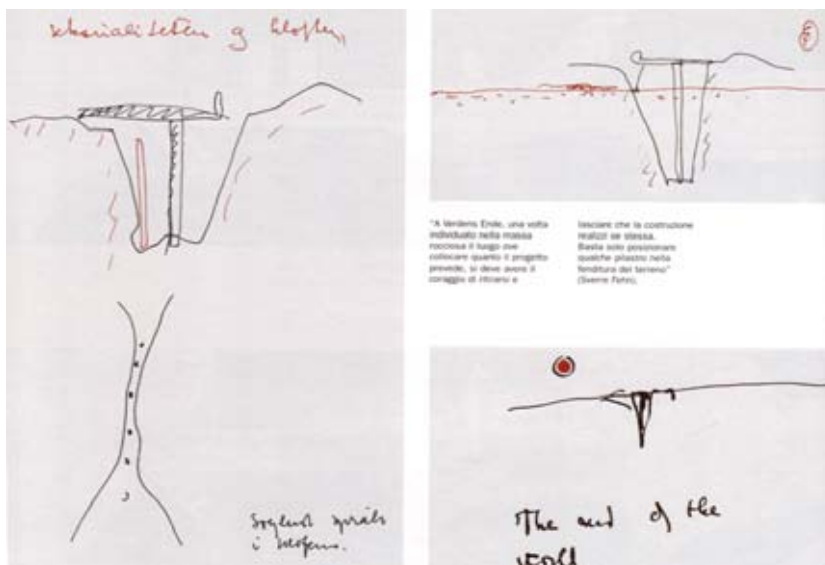 og kloften
"A Verdens Ende, una volta
individuato nella massa
rocciosa il luogo ove
collocare quanto il progetto
prevede, si deve avere il
coraggio di ritrarsi e
lasciare che la costruzione
realizzi se stessa.
Basta solo posizionare
qualche pilastro nella
fenditura del terreno"
(Sverre Fehn).
i kloften.
The end of the
world